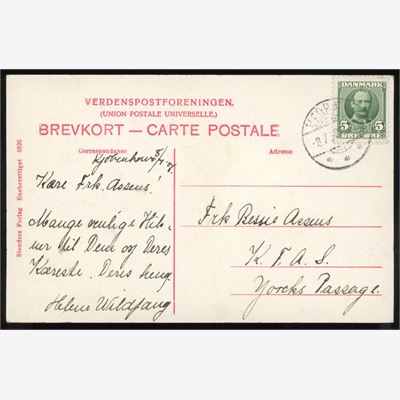 VERDENSPOSTFORENINGEN.
(UNION POSTALE UNIVERSELLE.)
BREVKORT — CARTE POSTALE
Correspondance
Adresse
Stenders Forlag Eneberettiget 8826
DANMARK
5 5
ØRE ØRE
Kjøbenhavn 8/7
Kære Frk. Assens!
Mange venlige Hils-
ner til Dem og Deres
Kæreste. Deres heng.
Helene Wildfang
Frk Bessie Assens
K. T. A. S.
Yorcks Passage.